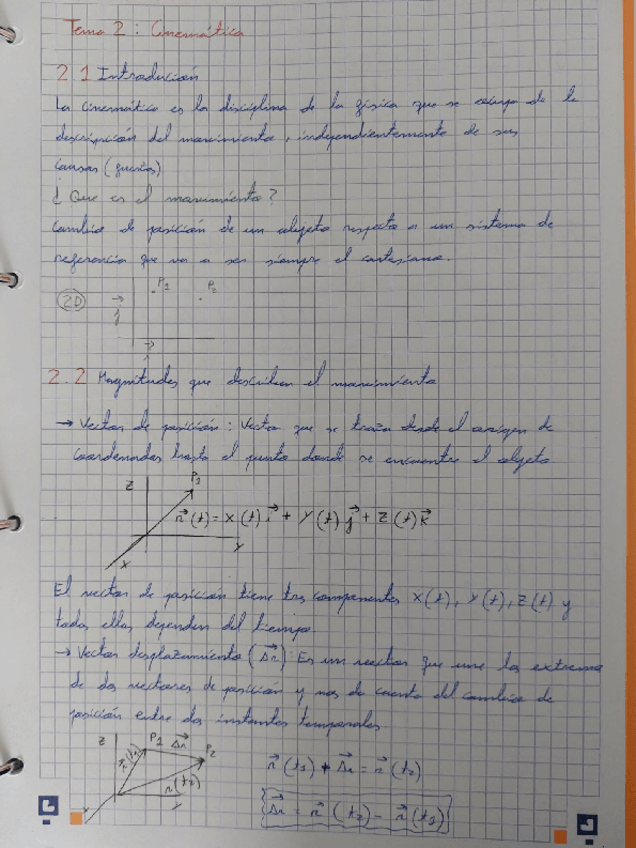 Tema 2: Cinemática
2.1 Introducción
La cinemática es la disciplina de la física que se ocupa de la
descripción del movimiento, independientemente de sus
causas (fuerzas)
¿Que es el movimiento?
Cambio de posición de un objeto respecto a un sistema de
referencia que va a ser siempre el cartesiano.
2D j P1 P2
i
2.2 Magnitudes que describen el movimiento
→ Vector de posición: Vector que se traza desde el origen de
coordenadas hasta el punto donde se encuentre el objeto
Z P1
r⃗(t) = x(t) i⃗ + y(t) j⃗ + z(t) k⃗
Y
X
El vector de posición tiene tres componentes x(t), y(t), z(t) y
todas ellas dependen del tiempo.
→ Vector desplazamiento (Δr⃗): Es un vector que une los extremos
de dos vectores de posición y nos da cuenta del cambio de
posición entre dos instantes temporales.
Z P1 Δr⃗ P2
r⃗(t1) r⃗(t2)
X Y
r⃗(t1) + Δr⃗ = r⃗(t2)
Δr⃗ = r⃗(t2) - r⃗(t1)